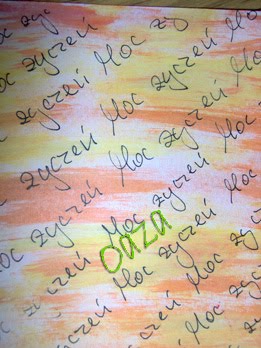 życ
oc życzeń Moc ży
życzeń Moc życzeń Moc
życzeń Moc życzeń Moc
oc życzeń Moc życzeń Moc
życzeń Moc życzeń Moc
Oaza
Moc życzeń Moc życzeń
życzeń Moc życ